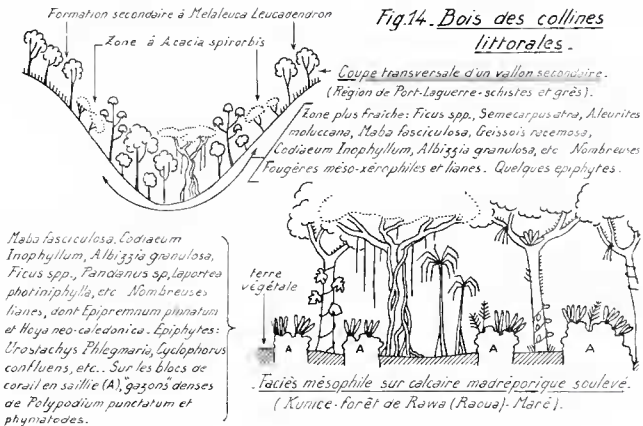 Fig.14. Bois des collines
littorales.
Formation secondaire à Melaleuca Leucadendron
Zone à Acacia spirorbis
Coupe transversale d'un vallon secondaire.
(Région de Port-Laguerre-schistes et grès).
Zone plus Fraîche: Ficus spp., Semecarpus atra, Aleurites
moluccana, Maba fasciculosa, Geissois racemosa,
Codiaeum Inophyllum, Albizzia granulosa, etc Nombreuses
Fougères méso-xérophiles et lianes. Quelques epiphytes.
Maba fasciculosa, Codiaeum
Inophyllum, Albizzia granulosa,
Ficus spp., Pandanus sp, Laportea
photiniphylla, etc Nombreuses
lianes, dont Epipremnum pinnatum
et Hoya neo-caledonica. Epiphytes:
Urostachys Phlegmaria, Cyclophorus
confluens, etc.. Sur les blocs de
corail en saillie (A), gazons denses
de Polypodium punctatum et
phymatodes.
terre
végétale
A A A A
Faciès mésophile sur calcaire madréporique soulevé.
(Kunice-forêt de Rawa (Raoua)-Maré).